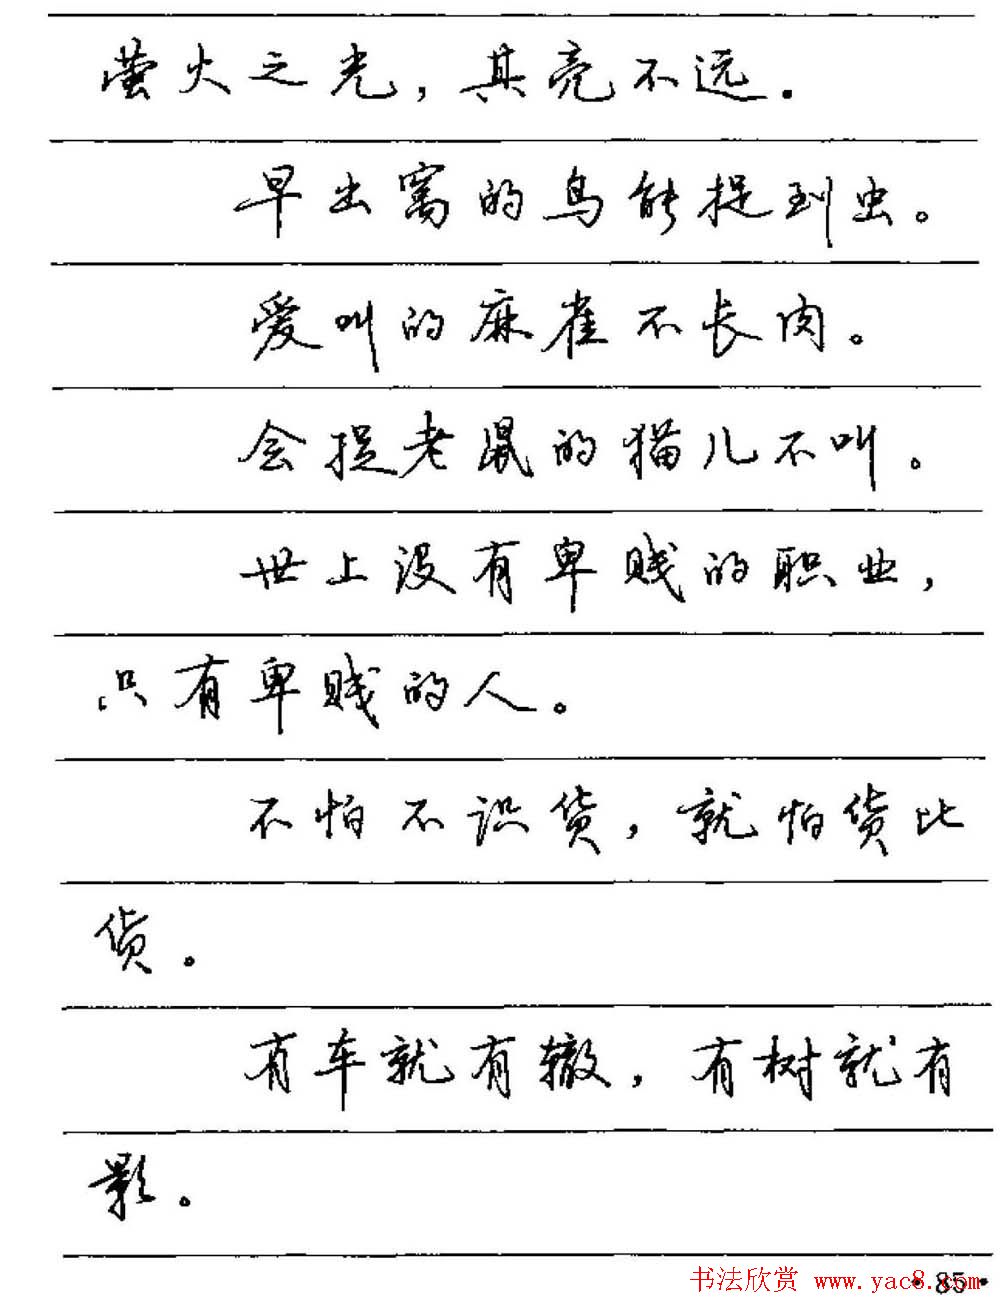 萤火之光，其亮不远.
早出窝的鸟能捉到虫。
爱叫的麻雀不长肉。
会捉老鼠的猫儿不叫。
世上没有卑贱的职业，
只有卑贱的人。
不怕不识货，就怕货比
货。
有车就有辙，有树就有
影。
书法欣赏 www.yac8.com
·85·